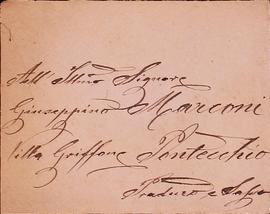 All' Illmo Signore
Giuseppino Marconi
Villa Griffone Pontecchio
Praduro e Sasso